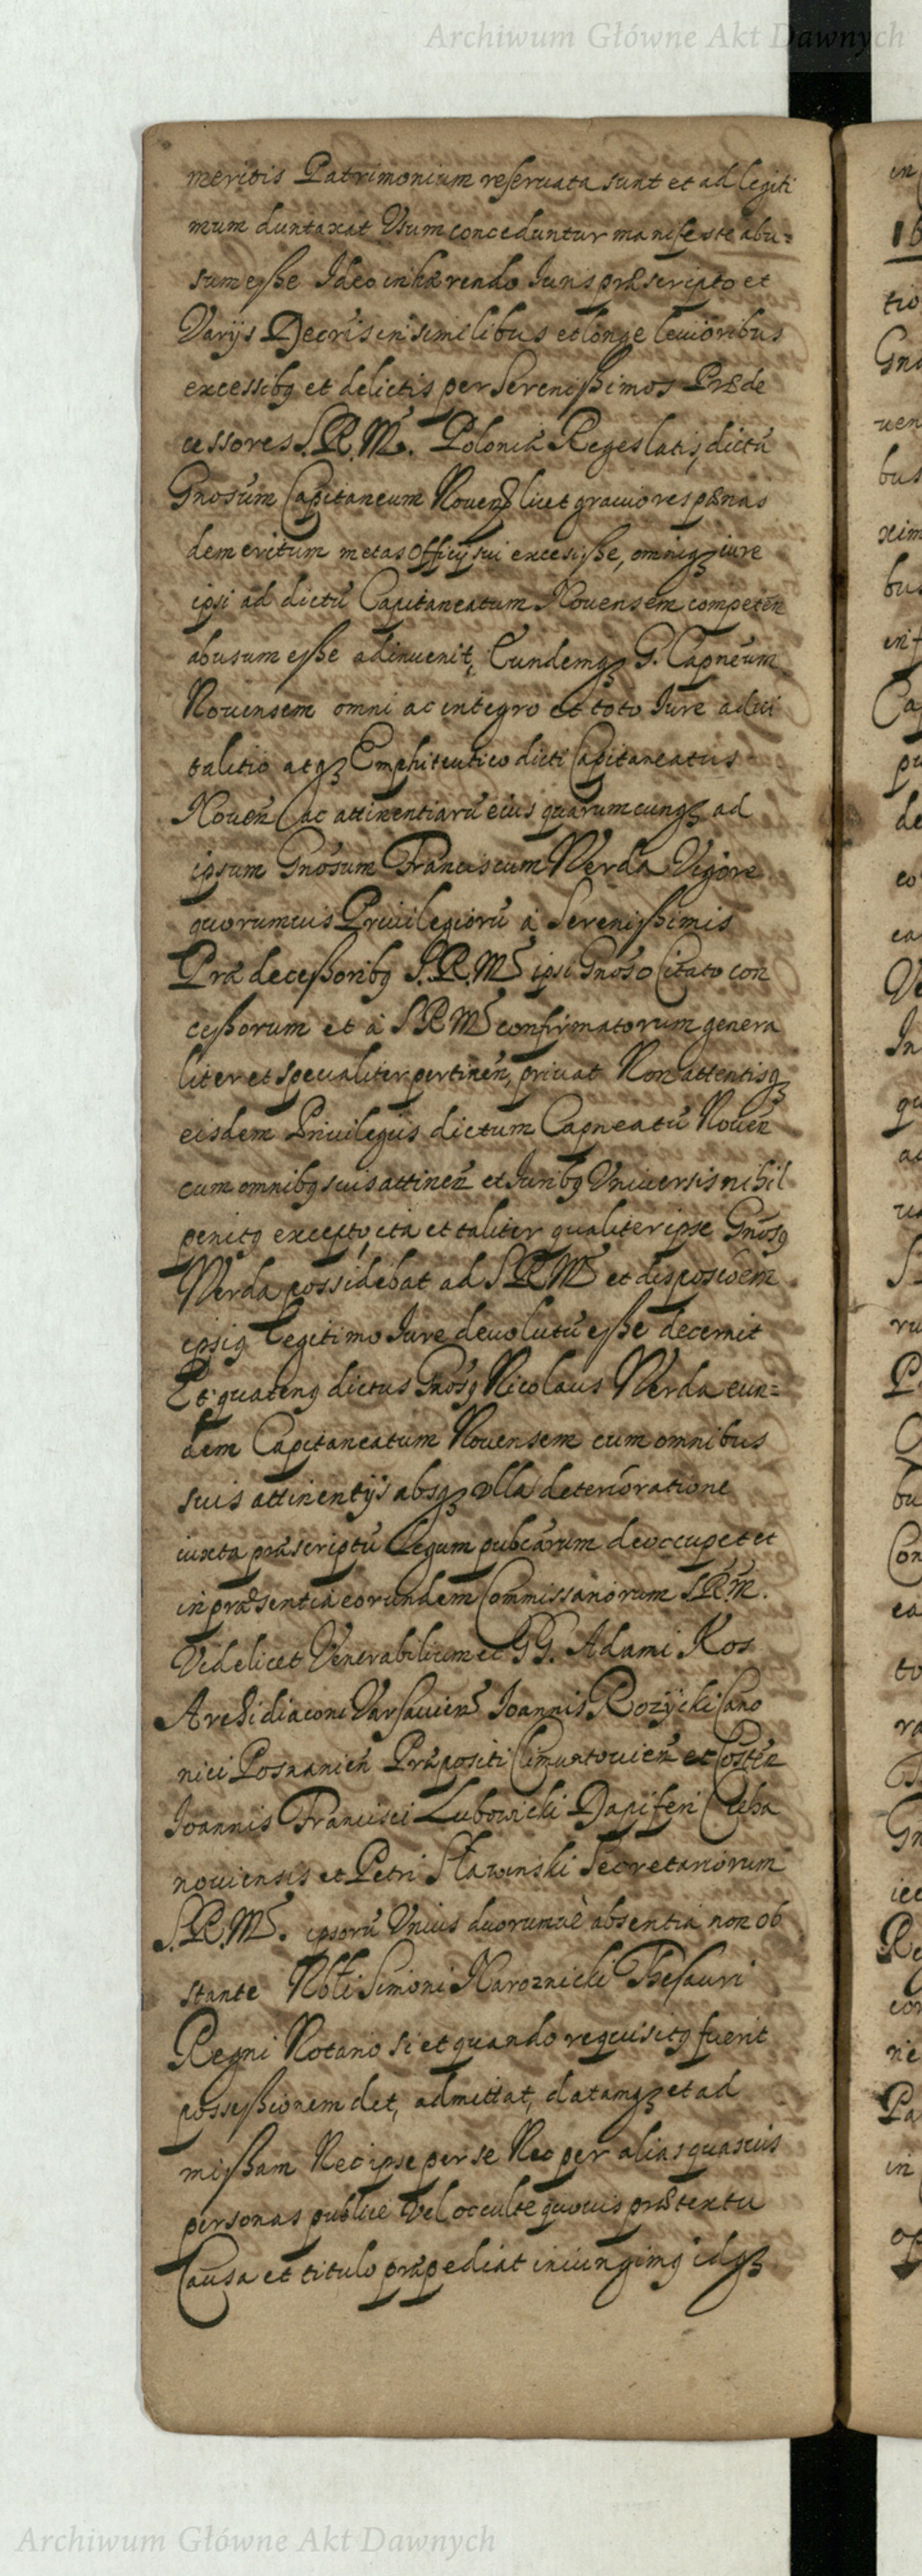 Archiwum Główne Akt Dawnych
meritis Patrimonium reseruata sunt et ad legiti
mum duntaxat Usum conceduntur manifeste abu-
sum esse Ideo inhærendo Iuris præscripto et
Varijs Decris in similibus et longe leuioribus
excessibq et delictis per Serenissimos Præde
cessores S.R.M. Poloniæ Reges latis, dictũ
Gnosum Capitaneum Nouen licet grauiores pænas
demeritum metas Officij sui excessisse, omniqz iure
ipsi ad dictũ Capitaneatum Nouensem competeñ
abusum esse adinuenit, Eundemqz G. Capneum
Nouensem omni ac integro et toto Iure adui
talitio atqz Emphiteutico dicti Capitaneatus
Noueñ ac attinentiarũ eius quarumcunqz ad
ipsum Gnosum Franciscum Werda Vigore
quorumuis Priuilegiorũ à Serenissimis
Prædecessoribq S.R.M. ipsi Gnoso Citato con
cessorum et à S R M confirmatorum genera
liter et specialiter pertineñ, priuat Non attentisqz
eisdem Priuilegiis dictum Capneatũ Noueñ
cum omnibq suis attineñ et Iuribq Vniuersis nihil
penitq excepto, ita et taliter qualiter ipse Gnosq
Werda possidebat ad S R M et disposicõem
ipsiq legitimo Iure deuolutũ esse decernit
Et quatenq dictus Gnosq Nicolaus Werda eun=
dem Capitaneatum Nouensem cum omnibus
suis attinentijs absqz vlla deterioratione
iuxta præscriptũ Legum pubcarum deoccupet et
in præsentia eorundem Commissariorum S.R.M.
Videlicet Venerabilium et GG. Adami Kos
Archidiaconi Varsauien Ioannis Rozycki Cano
nici Posnanieñ Præpositi Climuntouieñ et Costeñ
Ioannis Francisci Lubowicki Dapiferi Ciecha
nouiensis et Petri Slawinski Secretariorum
S.R.M. ipsorũ Vnius duorumuè absentia non ob
stante Nbli Simoni Naroznicki Thesauri
Regni Notario si et quando requisitq fuerit
possessionem det, admittat, datamqz et ad
missam Nec ipse per se Nec per alias quasuis
personas publice Vel occulte quouis prætextu
Causa et titulo præpediat iniungimq idqz
Archiwum Główne Akt Dawnych